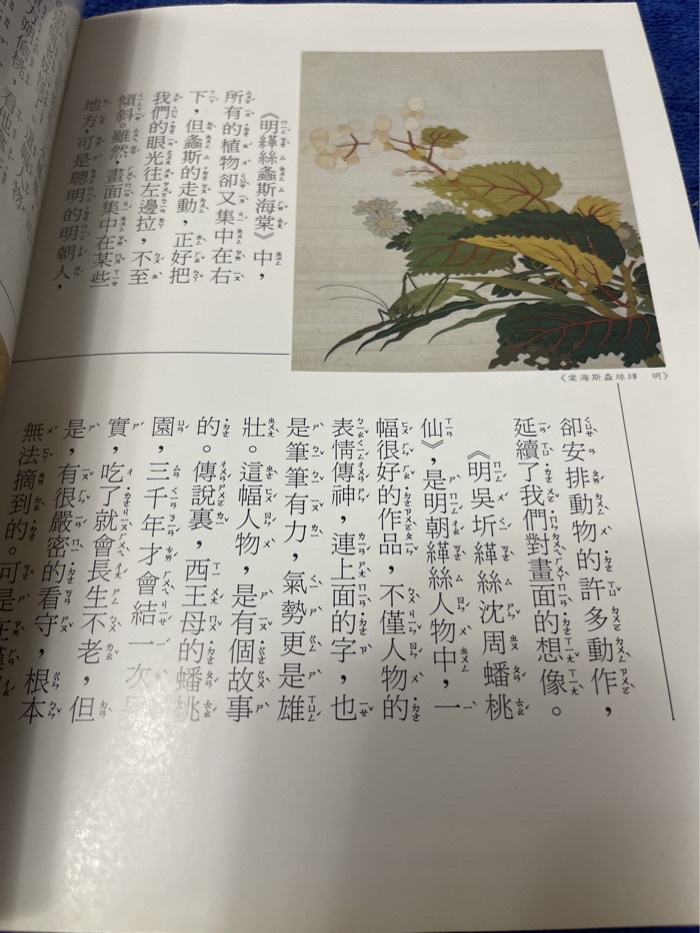 《明緙絲螽斯海棠》中，
所有的植物卻又集中在右
下，但螽斯的走動，正好把
我們的眼光往左邊拉，不至
傾斜。雖然，畫面集中在某些
地方，可是聰明的明朝人，
《明　緙絲螽斯海棠》
卻安排動物的許多動作，
延續了我們對畫面的想像。
《明吳圻緙絲沈周蟠桃
仙》，是明朝緙絲人物中，一
幅很好的作品，不僅人物的
表情傳神，連上面的字，也
是筆筆有力，氣勢更是雄
壯。這幅人物，是有個故事
的。傳說裏，西王母的蟠桃
園，三千年才會結一次果
實，吃了就會長生不老，但
是，有很嚴密的看守，根本
無法摘到的。可是在